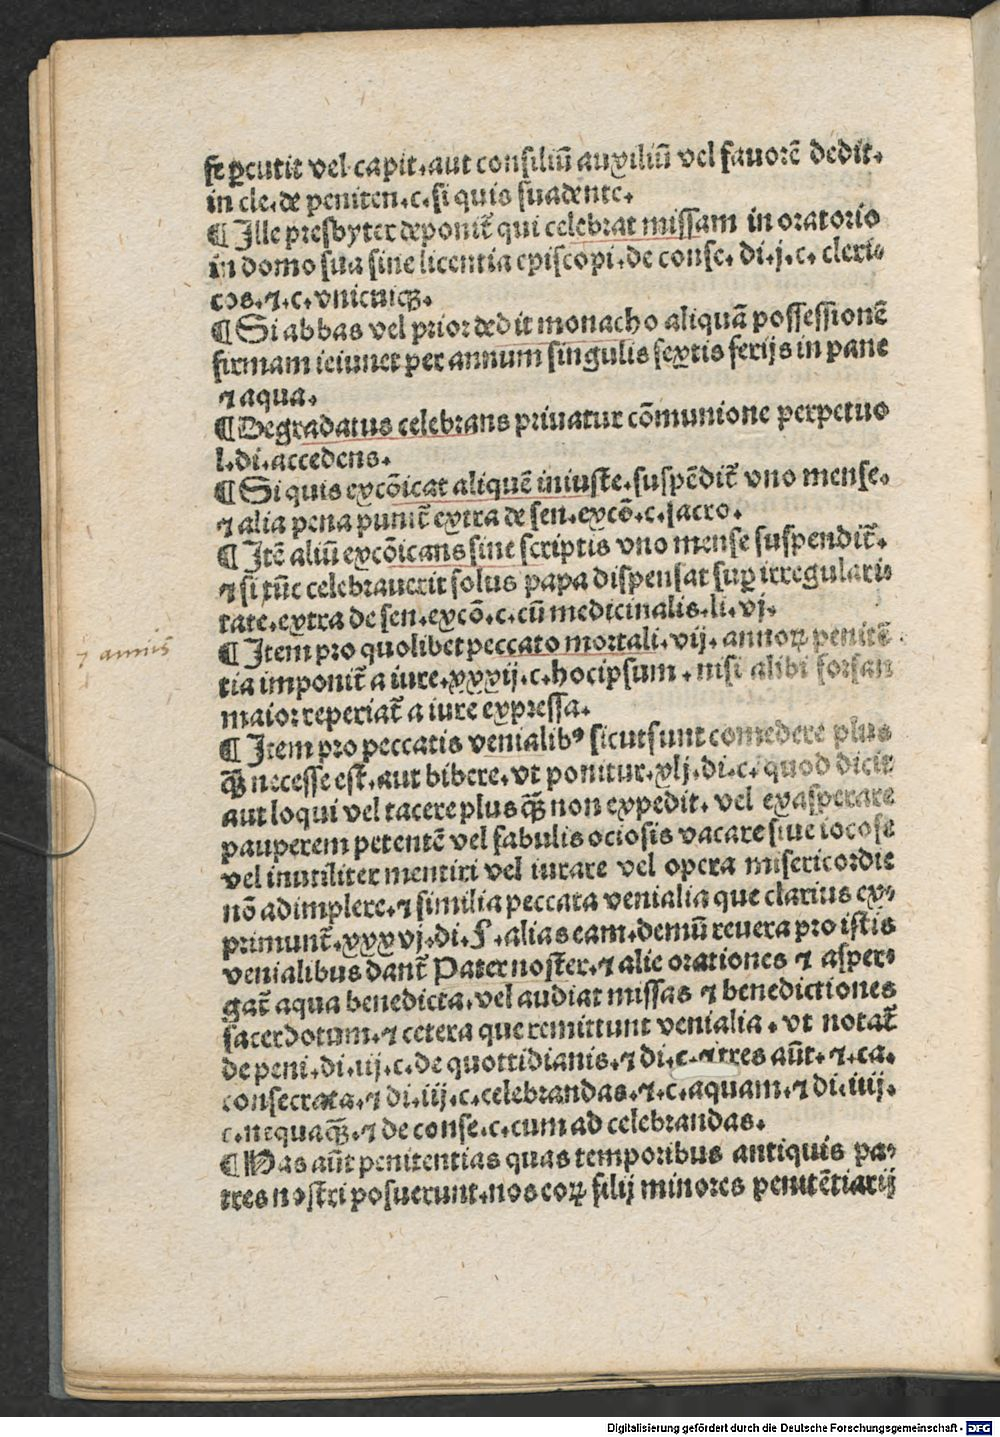 se ꝑcutit vel capit. aut consiliū auxiliū vel fauorē dedit.
in cle. de peniten. c. si quis suadente.
¶ Ille presbyter deponit̄ qui celebrat missam in oratorio
in domo sua sine licentia episcopi. de conse. di. j. c. cleri⸗
cos. ⁊. c. vnicuiqꝫ.
¶ Si abbas vel prior dedit monacho aliquā possessionē
firmam ieiunet per annum singulis sextis ferijs in pane
⁊ aqua.
¶ Degradatus celebrans priuatur cōmunione perpetuo
l. di. accedens.
¶ Si quis excōicat aliquē iniuste. suspēdit̄ vno mense.
⁊ alia pena punit̄ extra de sen. excō. c. sacro.
¶ Itē aliū excōicans sine scriptis vno mense suspendit̄.
⁊ si tūc celebrauerit solus papa dispensat suꝑ irregulari⸗
tate. extra de sen. excō. c. cū medicinalis. li. vj.
7 annis
¶ Item pro quolibet peccato mortali. vij. annoꝝ penitē
tia imponit̄ a iure. xxxij. c. hocipsum. nisi alibi forsan
maior reperiat̄ a iure expressa.
¶ Item pro peccatis venialibꝰ sicut sunt comedere plus
qꝫ̄ necesse est. aut bibere. vt ponitur. xlj. di. c. quod dicit
aut loqui vel tacere plus qꝫ̄ non expedit. vel exasperare
pauperem petentē vel fabulis ociosis vacare siue iocose
vel inutiliter mentiri vel iurare vel opera misericordie
nō adimplere. ⁊ similia peccata venialia que clarius ex⸗
primunt̄. xxxvj. di. §. alias eam. demū reuera pro istis
venialibus dant̄ Pater noster. ⁊ alie orationes ⁊ asper⸗
gat̄ aqua benedicta. vel audiat missas ⁊ benedictiones
sacerdotum. ⁊ cetera que remittunt venialia. vt notat̄
de peni. di. iij. c. de quottidianis. ⁊ di. c. ⁊ tres aūt. ⁊. ca.
consecrata. ⁊ di. iij. c. celebrandas. ⁊. c. aquam. ⁊ di. iiij.
c. nequaqꝫ̄. ⁊ de conse. c. cum ad celebrandas.
¶ Has aūt penitentias quas temporibus antiquis pa⸗
tres nostri posuerunt. nos eoꝝ filij minores penitētiarij
Digitalisierung gefördert durch die Deutsche Forschungsgemeinschaft - DFG